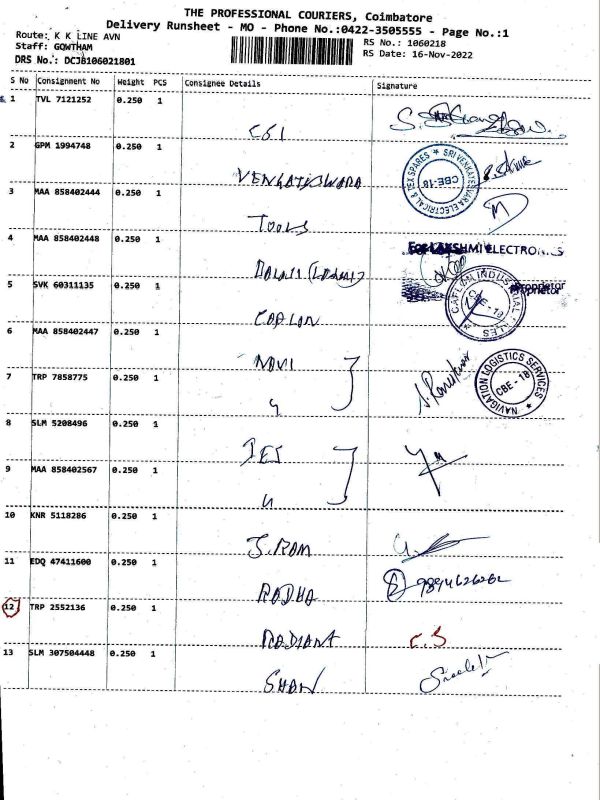 THE PROFESSIONAL COURIERS, Coimbatore
Delivery Runsheet - MO - Phone No.:0422-3505555 - Page No.:1
Route: K K LINE AVN
RS No.: 1060218
Staff: GOWTHAM
RS Date: 16-Nov-2022
DRS No.: DCJB106021801
S No Consignment No Weight PCS Consignee Details Signature
1 TVL 7121252 0.250 1
CSI
2 GPM 1994748 0.250 1
VENGATESWARA
SRI VENKATESWARA ELECTRICAL & TEX SPARES
CBE-18
3 MAA 858402444 0.250 1
TOOLS
4 MAA 858402448 0.250 1
For LAKSHMI ELECTRONICS
Proprietor
5 SVK 60311135 0.250 1
CAPLON
CAFLON INDUSTRIAL SALES
6 MAA 858402447 0.250 1
NAVI
7 TRP 7858775 0.250 1
NAVIGATION LOGISTICS SERVICES
CBE-18
8 SLM 5208496 0.250 1
JET
9 MAA 858402567 0.250 1
10 KNR 5118286 0.250 1
J.RAM
11 EDQ 47411600 0.250 1
RADHA
12 TRP 2552136 0.250 1
RADIANT C.S
13 SLM 307504448 0.250 1
SHAN